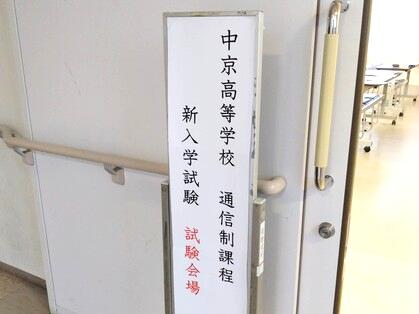 中京高等学校　通信制課程
新入学試験　試験会場